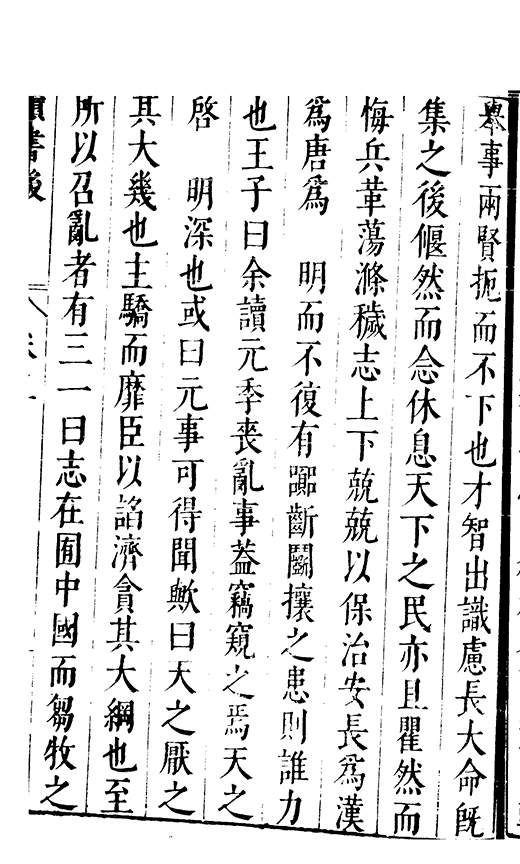 舉事兩賢扼而不下也才智出識慮長大命旣
集之後偃然而念休息天下之民亦且瞿然而
悔兵革蕩滌穢志上下兢兢以保治安長爲漢
爲唐爲　明而不復有齮齗鬭攘之患則誰力
也王子曰余讀元季喪亂事蓋竊窺之焉天之
啓　明深也或曰元事可得聞歟曰天之厭之
其大幾也主驕而靡臣以諂濟貪其大綱也至
所以召亂者有三一曰志在囿中國而芻牧之
讀書後